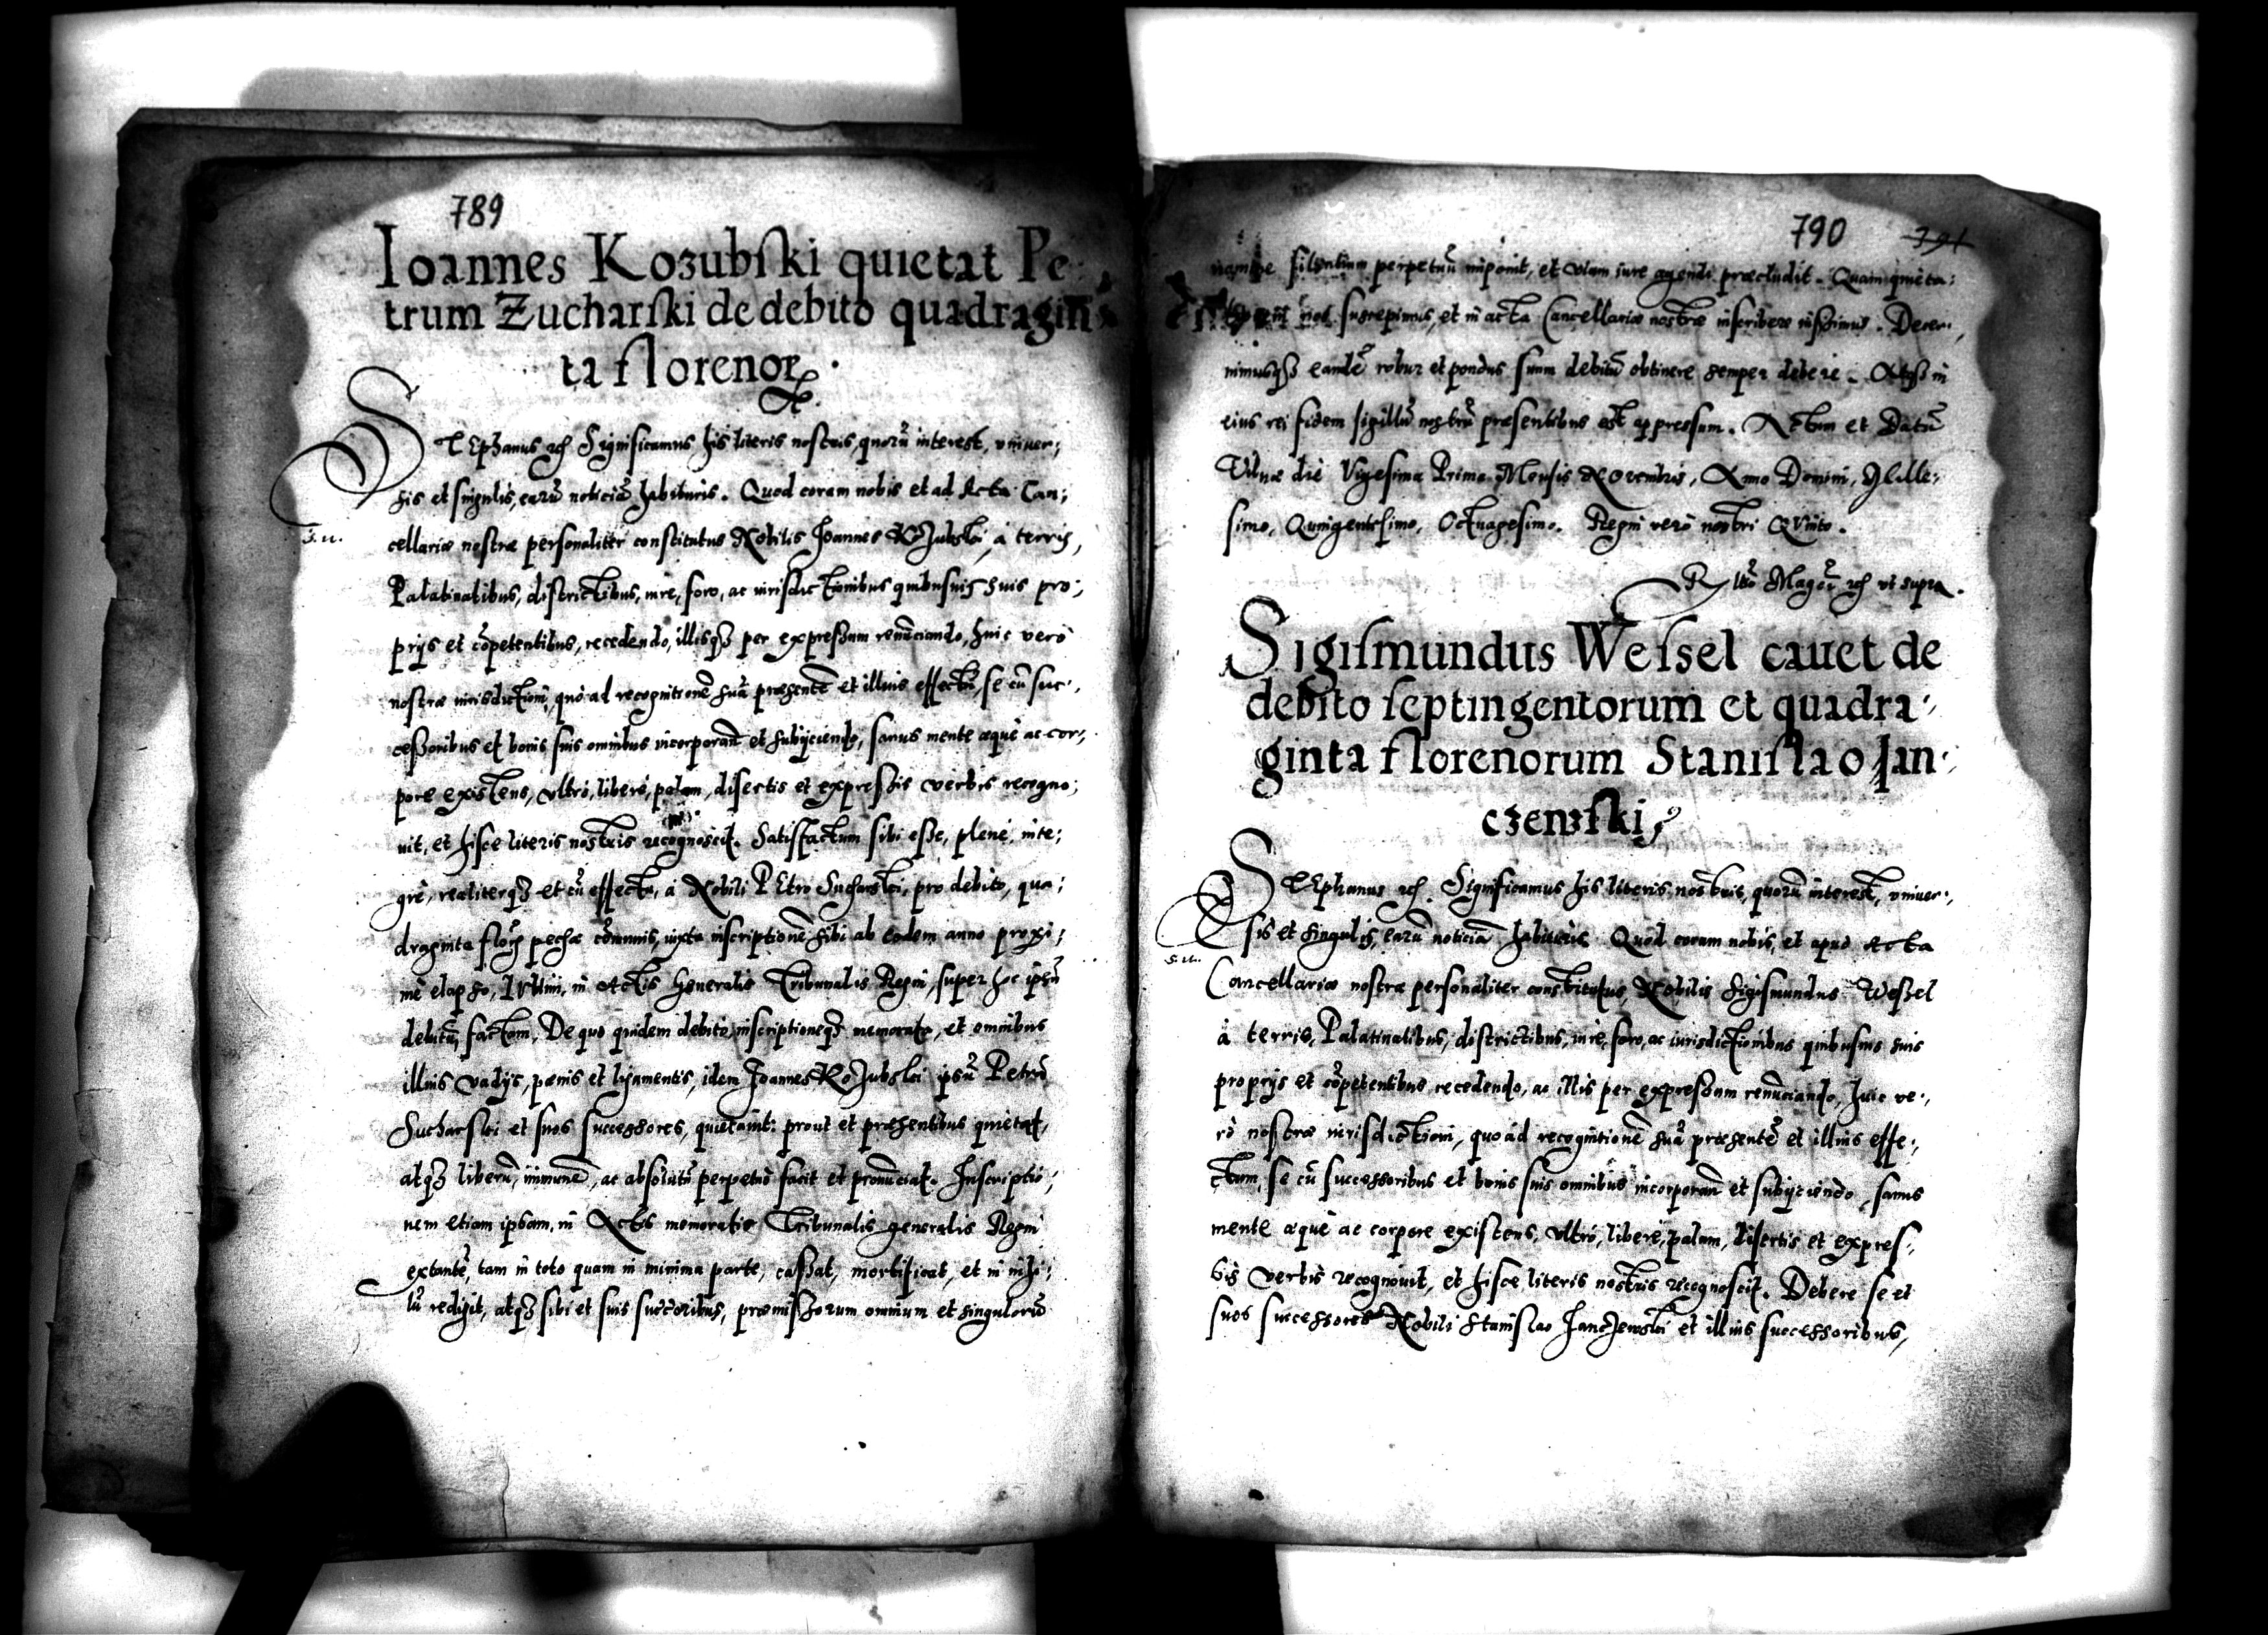 789
Ioannes Kozubski quietat Pe
trum Zucharski de debito quadragin
ta florenor.
STEphanus etc Significamus his literis nostris, quorũ interest, vniuer;
sis et singulis, earũ noticiã habituris. Quod coram nobis et ad Acta Can;
cellariæ nostræ personaliter constitutus Nobilis Joannes Kozubski, à terris,
Palatinatibus, districtibus, iure, foro, ac iurisdictionibus quibusuis suis pro;
prijs et cõpetentibus, recedendo, illisq3 per expressum renũciando, huic verò
nostræ iurisdictioni, quo ad recognitionẽ suã præsentẽ et illius effectũ, se cũ suc;
cessoribus et bonis suis omnibus incorporañ et subijciendo, sanus mente æquè ac cor;
pore existens, vltrò, liberè, palam, disertis et expressis verbis recogno;
uit, et hisce literis nostris recognoscit. Satisfactum sibi esse, plenè, inte;
grè, realiterq3 et cũ effectu, à Nobili PEtro Sucharski, pro debito, qua;
draginta floch pechæ cõmunis, iuxta inscriptionẽ sibi ab eodem anno proxi;
mè elapso, in Actis Generalis Tribunalis Regni, super hoc ipsũ
debitũ, factam. De quo quidem debito, inscriptioneq3 memorata, et omnibus
illius vadijs, pænis et ligamentis, idem Joannes Kozubski ipsũ Petrũ
Sucharski et suos successores, quietauit: prout et præsentibus quietat,
atq3 liberũ, immunẽ, ac absolutũ perpetuò facit et pronũciat. Inscriptio;
nem etiam ipsam, in Actis memoratis Tribunalis generalis Regni
extantẽ, tam in toto quam in minima parte, cassat, mortificat, et in nihi;
lũ redigit, atq3 sibi et suis succoribus, præmissorum omnium et singulorũ
S. u.
790
791
nomine silentium perpetuũ imponit, et viam iure agendi præcludit. Quam quieta;
nos suscepimus, et in acta Cancellariæ nostræ inscribere iussimus. Decer;
nimusq3 eandẽ robur et pondus suum debitũ obtinere semper debere. Atq3 in
eius rei fidem sigillũ nostrũ præsentibus est appressum. Actum et Datũ
Vilnæ die Vigesima Prima Mensis Nouembris, Anno Domini, Mille;
simo, Quingentesimo, Octuagesimo. Regni verò nostri Quinto.
etc vt supra.
Sigismundus Wessel cauet de
debito septingentorum et quadra
ginta florenorum Stanislao Jan
czewski
STEphanus etc. Significamus his literis nostris, quorũ interest, vniuer;
sis et singulis, earũ noticiã habituris. Quod coram nobis, et apud Acta
Cancellariæ nostræ personaliter constitutus, Nobilis Sigismundus Wessel
à terris, Palatinatibus, districtibus, iure, foro, ac iurisdictionibus quibusuis suis
proprijs et cõpetentibus recedendo, ac illis per expressum renũciando, huic ve;
rò nostræ iurisdictioni, quo ad recognitionẽ suã præsentẽ et illius effe;
ctum, se cũ successoribus et bonis suis omnibus incorporañ et subijciendo, sanus
mente æquè ac corpore existens, vltrò, liberè, palam, disertis et expres;
sis verbis recognouit, et hisce literis nostris recognoscit. Debere se et
suos successores Nobili Stanislao Janczewski et illius successoribus,
S. u.